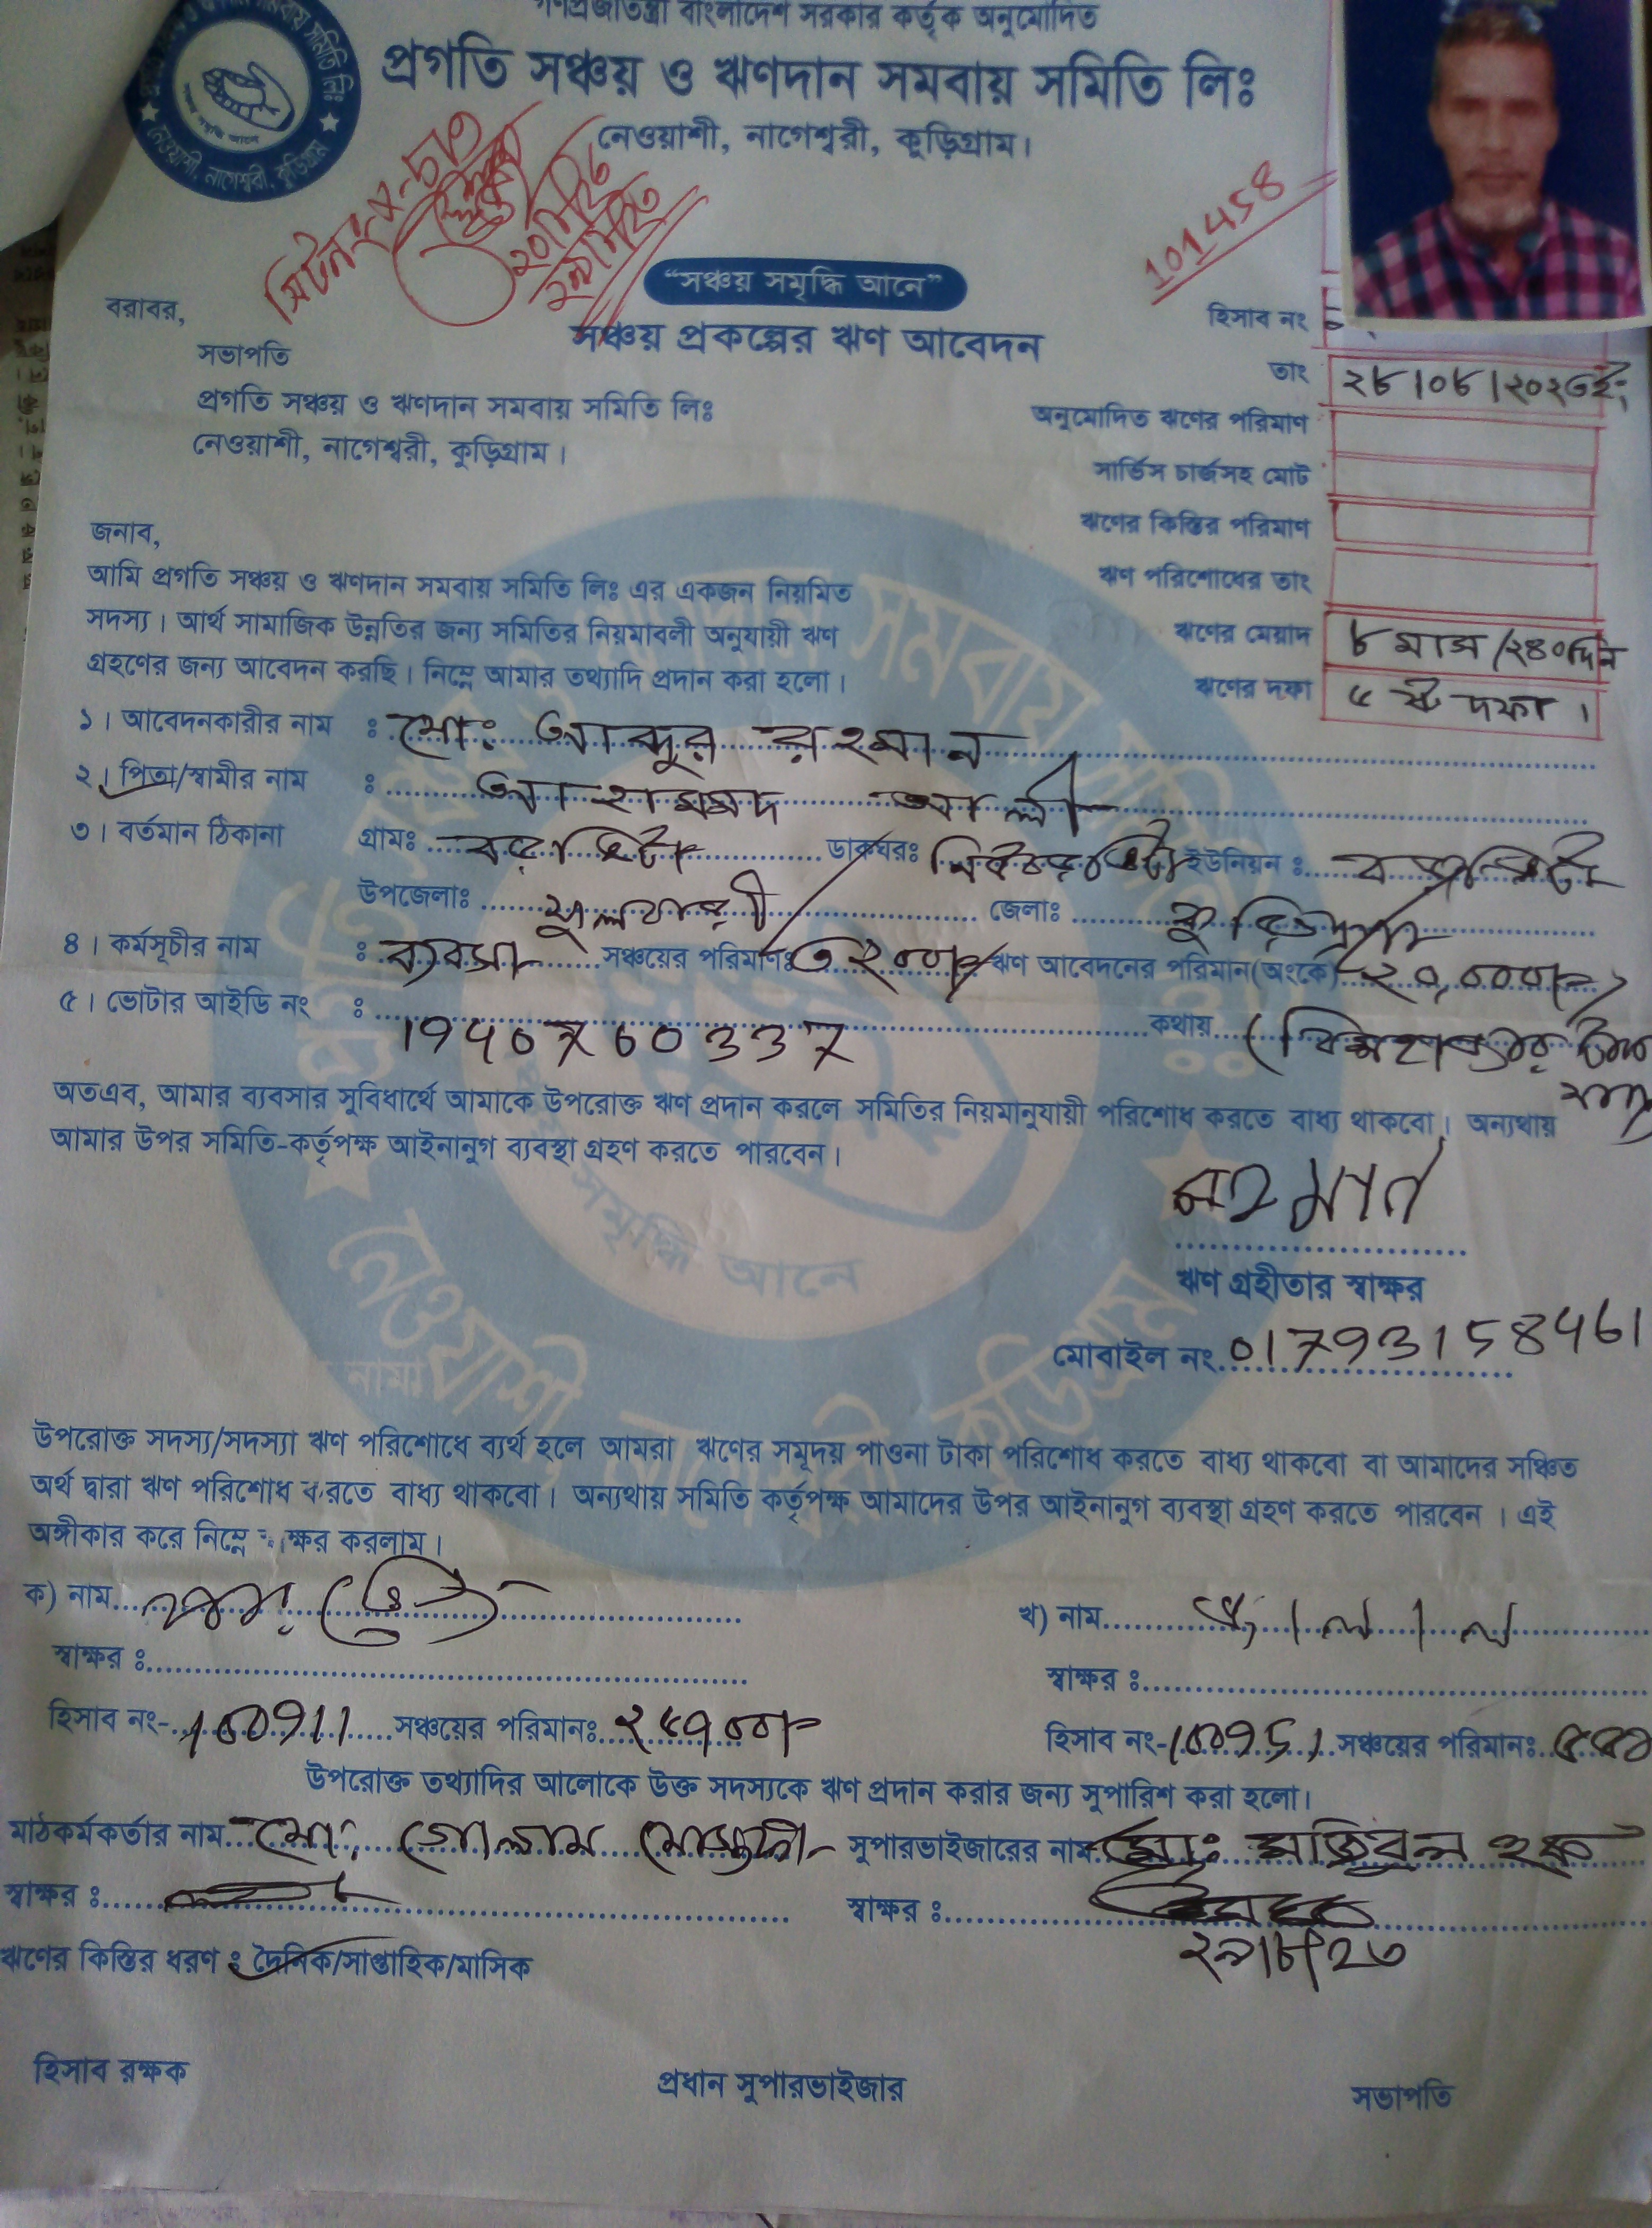 গণপ্রজাতন্ত্রী বাংলাদেশ সরকার কর্তৃক অনুমোদিত
প্রগতি সঞ্চয় ও ঋণদান সমবায় সমিতি লিঃ
নেওয়াশী, নাগেশ্বরী, কুড়িগ্রাম।
101458
“সঞ্চয় সমৃদ্ধি আনে”
সঞ্চয় প্রকল্পের ঋণ আবেদন
বরাবর,
সভাপতি
প্রগতি সঞ্চয় ও ঋণদান সমবায় সমিতি লিঃ
নেওয়াশী, নাগেশ্বরী, কুড়িগ্রাম।
হিসাব নং
তাং ২৮/০৮/২০২৩ইং
অনুমোদিত ঋণের পরিমাণ
সার্ভিস চার্জসহ মোট
ঋণের কিস্তির পরিমাণ
ঋণ পরিশোধের তাং
ঋণের মেয়াদ ৮ মাস/২৪০দিন
ঋণের দফা ৫ ষ্ট দফা।
জনাব,
আমি প্রগতি সঞ্চয় ও ঋণদান সমবায় সমিতি লিঃ এর একজন নিয়মিত
সদস্য। আর্থ সামাজিক উন্নতির জন্য সমিতির নিয়মাবলী অনুযায়ী ঋণ
গ্রহণের জন্য আবেদন করছি। নিম্নে আমার তথ্যাদি প্রদান করা হলো।
১। আবেদনকারীর নাম : মোঃ আব্দুর রহমান
২। পিতা/স্বামীর নাম : আহাম্মদ আলী
৩। বর্তমান ঠিকানা গ্রামঃ বড়ভিটা ডাকঘরঃ ইউনিয়ন : বড়ভিটা
উপজেলাঃ ফুলবাড়ী জেলাঃ কুড়িগ্রাম
৪। কর্মসূচীর নাম : ব্যবসা সঞ্চয়ের পরিমাণঃ ৩২০০/= ঋণ আবেদনের পরিমান(অংকে) ২০,০০০/=
৫। ভোটার আইডি নং : 1940760337 কথায় (বিশ হাজার টাকা মাত্র)
অতএব, আমার ব্যবসার সুবিধার্থে আমাকে উপরোক্ত ঋণ প্রদান করলে সমিতির নিয়মানুযায়ী পরিশোধ করতে বাধ্য থাকবো। অন্যথায়
আমার উপর সমিতি-কর্তৃপক্ষ আইনানুগ ব্যবস্থা গ্রহণ করতে পারবেন।
রহমান
ঋণ গ্রহীতার স্বাক্ষর
মোবাইল নং 01793158461
উপরোক্ত সদস্য/সদস্যা ঋণ পরিশোধে ব্যর্থ হলে আমরা ঋণের সমূদয় পাওনা টাকা পরিশোধ করতে বাধ্য থাকবো বা আমাদের সঞ্চিত
অর্থ দ্বারা ঋণ পরিশোধ করতে বাধ্য থাকবো। অন্যথায় সমিতি কর্তৃপক্ষ আমাদের উপর আইনানুগ ব্যবস্থা গ্রহণ করতে পারবেন। এই
অঙ্গীকার করে নিম্নে স্বাক্ষর করলাম।
ক) নাম
খ) নাম
স্বাক্ষর :
স্বাক্ষর :
হিসাব নং- 100911 সঞ্চয়ের পরিমানঃ ২৫৭০০/=
হিসাব নং- 100951 সঞ্চয়ের পরিমানঃ
উপরোক্ত তথ্যাদির আলোকে উক্ত সদস্যকে ঋণ প্রদান করার জন্য সুপারিশ করা হলো।
মাঠকর্মকর্তার নাম মোঃ গোলাম মোস্তফা সুপারভাইজারের নাম মোঃ মজিবুল হক
স্বাক্ষর :
স্বাক্ষর :
২৯/৮/২৩
ঋণের কিস্তির ধরণ : দৈনিক/সাপ্তাহিক/মাসিক
হিসাব রক্ষক
প্রধান সুপারভাইজার
সভাপতি